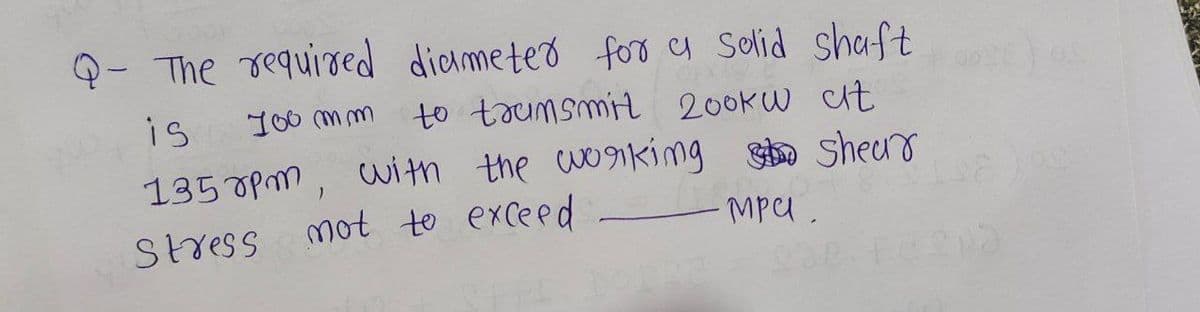 Q- The required diameter for a Solid shaft
is 100 mm to transmit 200KW at
135 rpm, with the working shear
Stress not to exceed ——— MPa.